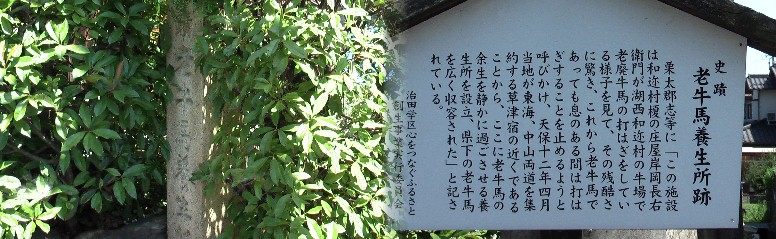 史蹟
老牛馬養生所跡
栗太郡志等に「この施設
は和迩村榎の庄屋岸岡長右
衛門が湖西和迩村の牛場で
老廃牛馬の打はぎをしてい
る様子を見て、その残酷さ
に驚き、これから老牛馬で
あっても息のある間は打は
ぎすることを止めるようと
呼びかけ、天保十二年四月
当地が東海、中山両道を集
約する草津宿の近くである
ことから、ここに老牛馬の
余生を静かに過ごさせる養
生所を設立、県下の老牛馬
を広く収容された」と記さ
れている。
治田学区心をつなぐふるさと
創生事業実行委員会